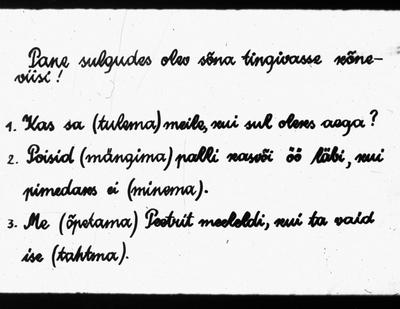 Pane sulgudes olev sõna tingivasse kõne-
viisi!
1. Kas sa (tulema) meile, kui sul oleks aega?
2. Poisid (mängima) palli kasvõi öö läbi, kui
pimedaks ei (minema).
3. Me (õpetama) Peetrit meeleldi, kui ta vaid
ise (tahtma).